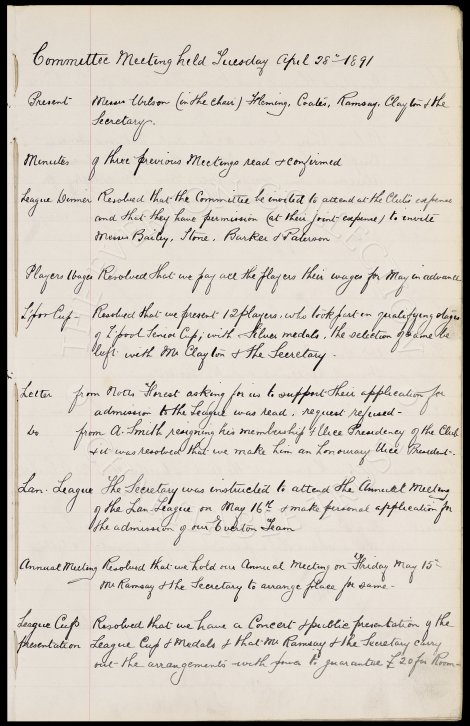 Committee Meeting held Tuesday April 28th 1891
Present Messrs Wilson (in the chair) Fleming, Coates, Ramsay, Clayton & the
Secretary.
Minutes of three previous Meetings read & confirmed
League Dinner Resolved that the Committee be invited to attend at the Club's expense
and that they have permission (at their joint expense) to invite
Messrs Bailey, Stone, Barker & Paterson
Players Wages Resolved that we pay all the players their wages for May in advance
L'pool Cup - Resolved that we present 12 players, who took part in qualifying stages
of L'pool Senior Cup, with Silver medals, the selection of same be
left with Mr Clayton & the Secretary.
Letter from Notts Forest asking for us to support their application for
admission to the League was read, request refused -
Do from A. Smith resigning his membership & Vice Presidency of the Club
& it was resolved that we make him an honourary Vice President.
Lan. League The Secretary was instructed to attend the Annual Meeting
of the Lan. League on May 16th & make personal application for
the admission of our Everton Team
Annual Meeting Resolved that we hold our Annual Meeting on Friday May 15th
Mr Ramsay & the Secretary to arrange place for same -
League Cup Resolved that we have a Concert & public presentation of the
presentation League Cup & Medals & that Mr Ramsay & the Secretary carry
out the arrangements with power to guarantee £20 for Room -